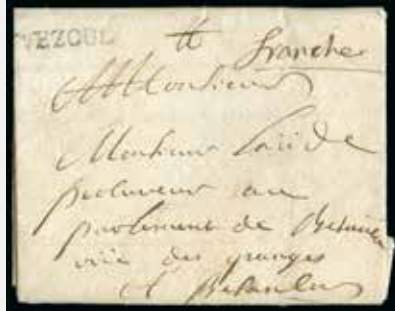 VEZOUL
franche
A Monsieur
Monsieur
procureur au
parlement de Besançon
rüe des granges
A Besançon